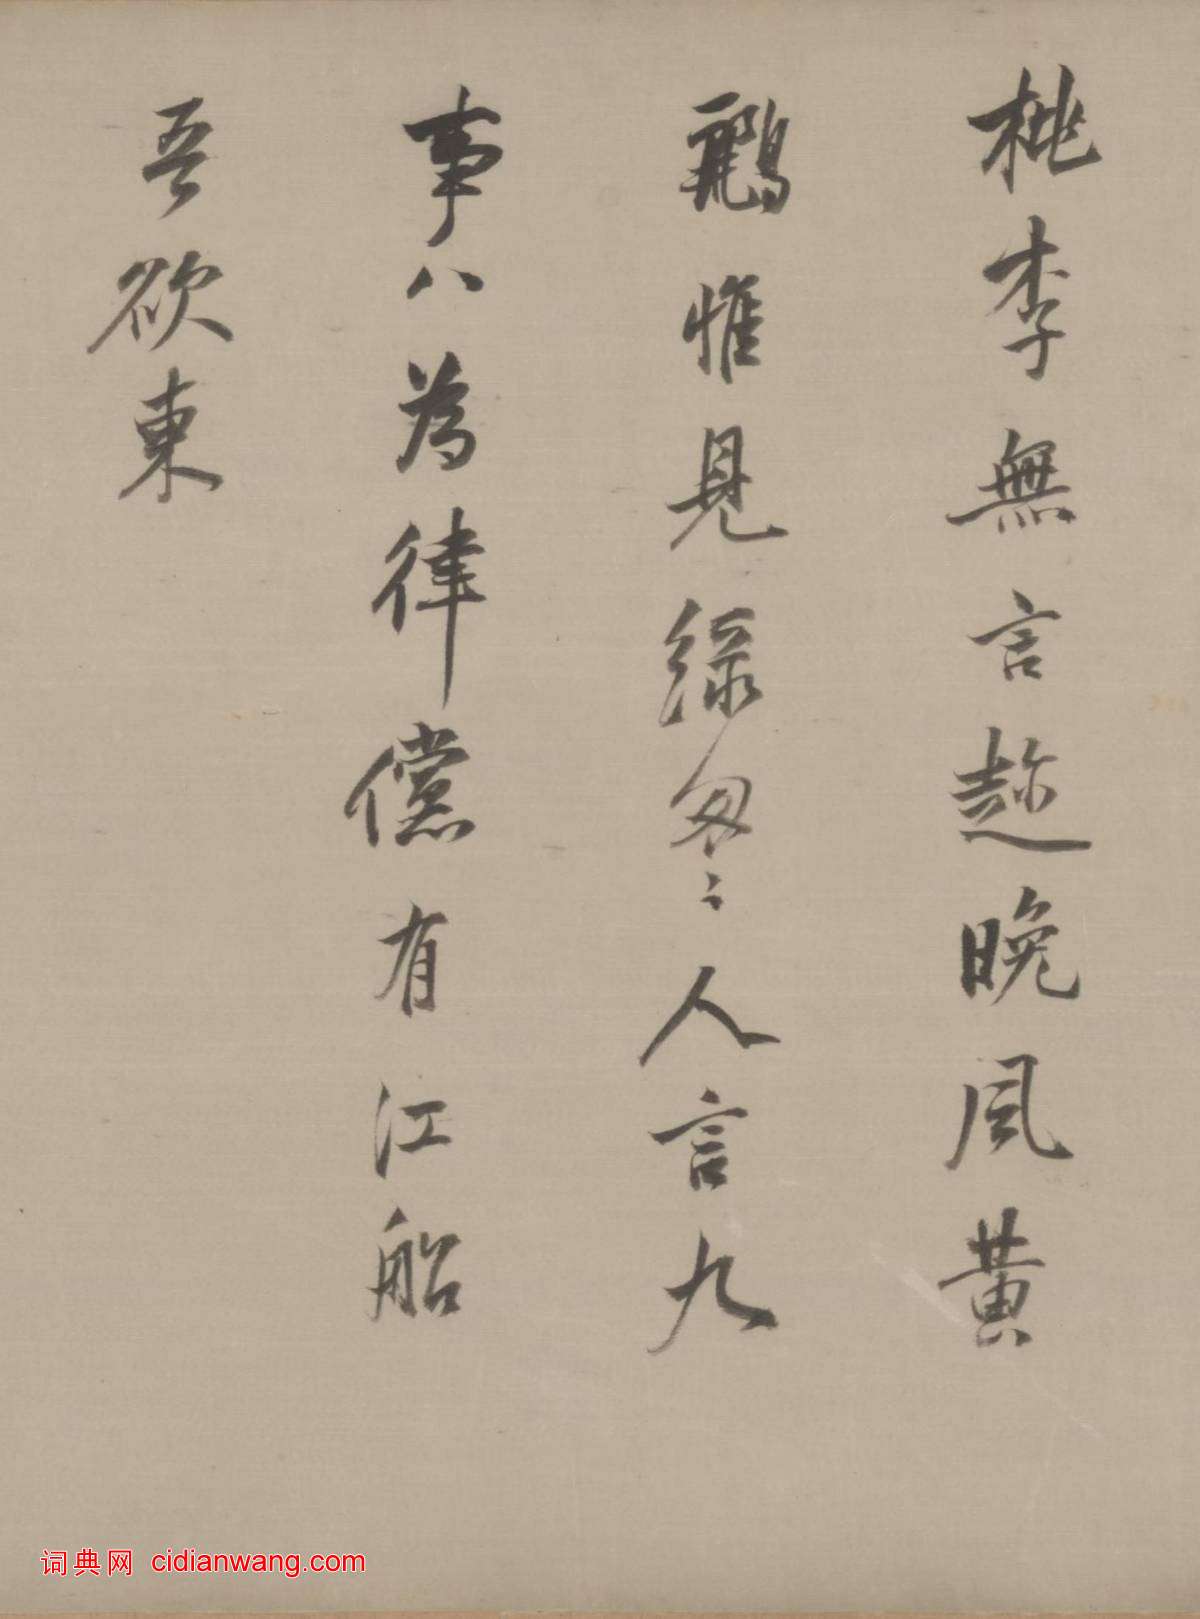 桃李無言趂晚風黃
鸝惟見綠匆〻人言九
事八為律儻有江船
吾欲東
词典网 cidianwang.com